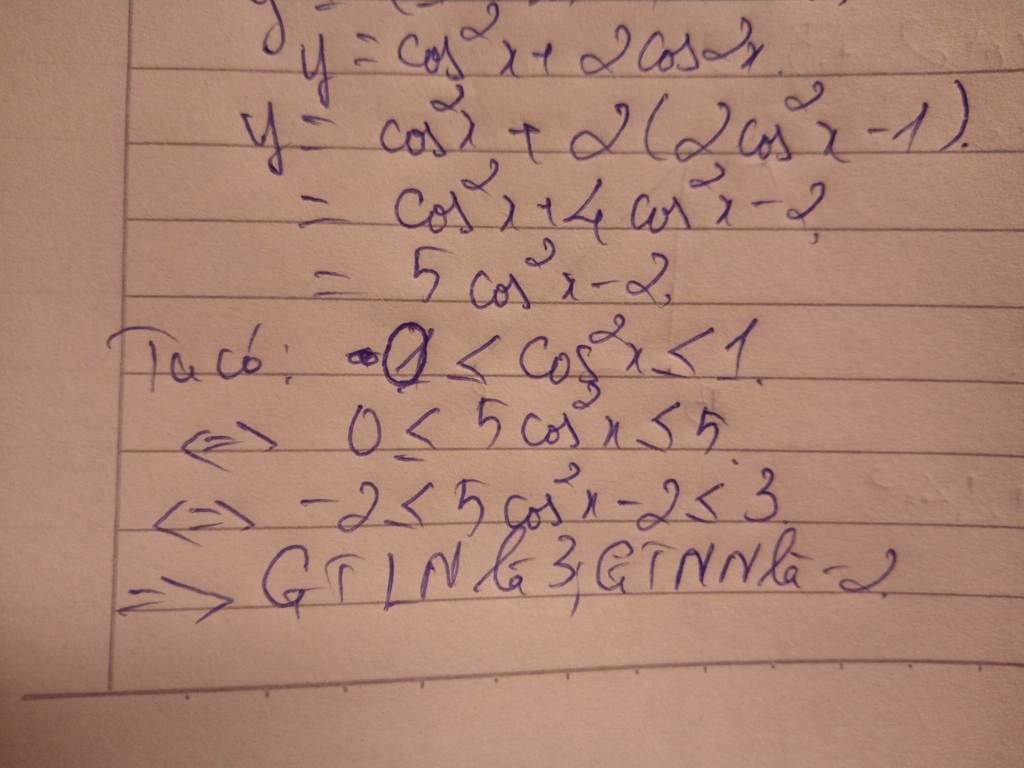 y = cos²x + 2cos2x
y = cos²x + 2(2cos²x - 1).
= cos²x + 4cos²x - 2
= 5cos²x - 2
Ta có: 0 ≤ cos²x ≤ 1.
<=> 0 ≤ 5cos²x ≤ 5.
<=> -2 ≤ 5cos²x - 2 ≤ 3
=> GTLN là 3, GTNN là -2.